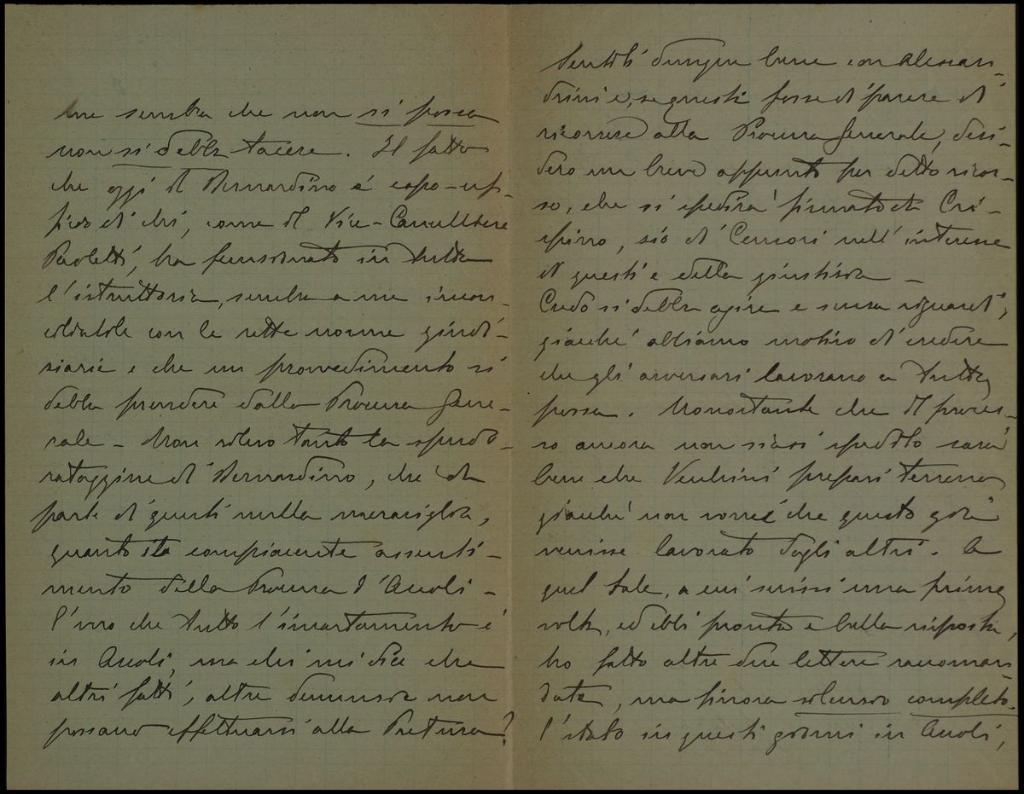 me sembra che non si possa
non si debba tacere. Il fatto
che oggi il Bernardino è capo-uf-
ficio di chi, come il Vice-Cancelliere
Paoletti, ha funzionato in tutta
l'istruttoria, sembra a me incon-
ciliabile con le rette norme giudi-
siarie e che un provvedimento si
debba prendere dalla Procura Gene-
rale - Non rilevo tanto la spudo-
rataggine di Bernardino, che da
parte di questi nulla meraviglia,
quanto compiacente assenti-
mento della Procura d'Ascoli -
È vero che tutto l'incartamento è
in Ascoli, ma chi mi dice che
altri fatti, altre denunsie non
possano effettuarsi alla Pretura?
Sentiti dunque bene con Alessan-
drini e, se questi fosse di parere di
ricorrere alla Procura Generale, desi-
dero un breve appunto per detto ricor-
so, che si spedirà firmato da Cri-
spino, sio di Censori nell'interesse
di questi e della giustisia -
Credo si debba agire e senza riguardi,
giacché abbiamo motivo di credere
che gli avversari lavorano a tutta
possa. Nonostante che il proces-
so ancora non siasi spedito sarà
bene che prepari terreno
giacché non vorrei che questo già
venisse lavorato dagli altri. A
quel tale, a cui scrissi una prima
volta, ed ebbi pronta e bella risposta,
ho fatto altre due lettere raccoman
date, ma finora silensio completo.
È stato in questi giorni in Ascoli,